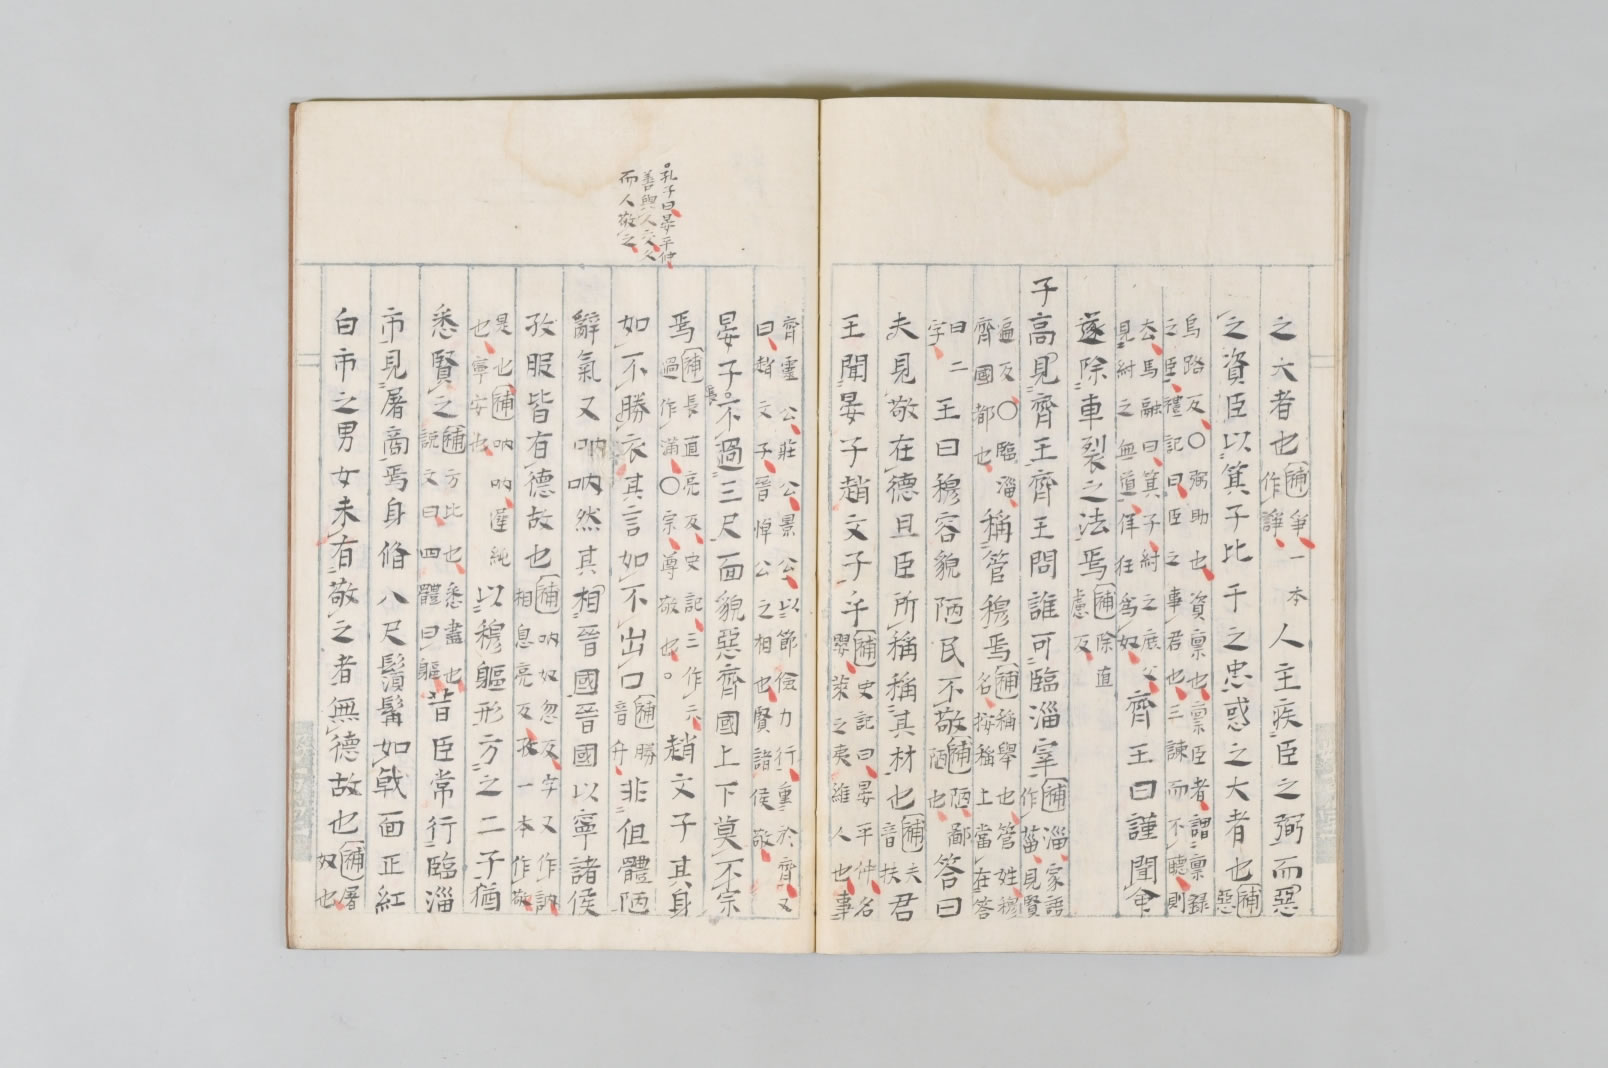 之大者也補爭一本作諍人主疾臣之弼而惡
之資臣以箕子比干之忠惑之大者也補惡
烏路反〇弼助也資稟也稟臣者謂稟錄
之臣禮記曰臣之事君也三諫而不聽則
去馬融曰箕子紂之庶父
見紂之無道佯狂爲奴齊王曰謹聞命
遂除車裂之法焉補除直
慮反
子高見齊王齊王問誰可臨淄宰補淄家語
作菑見賢
遍反〇臨淄
齊國都也稱管穆焉補稱舉也管姓穆
名按稱上當在答
曰二
字王曰穆容貌陋民不敬補陋鄙
陋也答曰
夫見敬在德且臣所稱稱其材也補夫
音扶君
王聞晏子趙文子乎補史記曰晏平仲名
嬰萊之夷維人也事
孔子曰晏平仲
善與人交久
而人敬之
齊靈公莊公景公以節儉力行重於齊又
曰趙文子晉悼公之相也賢諸侯敬
晏子長不過三尺面貌惡齊國上下莫不宗
焉補長直亮反史記三作六
過作滿〇宗尊敬也。趙文子其身
如不勝衣其言如不出口補勝
音升非但體陋
辭氣又吶吶然其相晉國晉國以寧諸侯
孜服皆有德故也補吶奴忽反字又作訥
相息亮反孜一本作敬
是也補吶吶遲純
也寧安也以穆軀形方之二子猶
悉賢之補方比也悉盡也
說文曰四體曰軀昔臣常行臨淄
市見屠商焉身脩八尺鬚髯如戟面正紅
白市之男女未有敬之者無德故也補屠
奴也